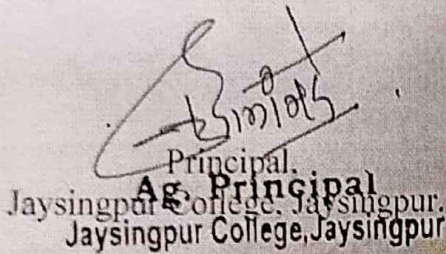 Principal,
Ag. Principal
Jaysingpur College, Jaysingpur.
Jaysingpur College, Jaysingpur